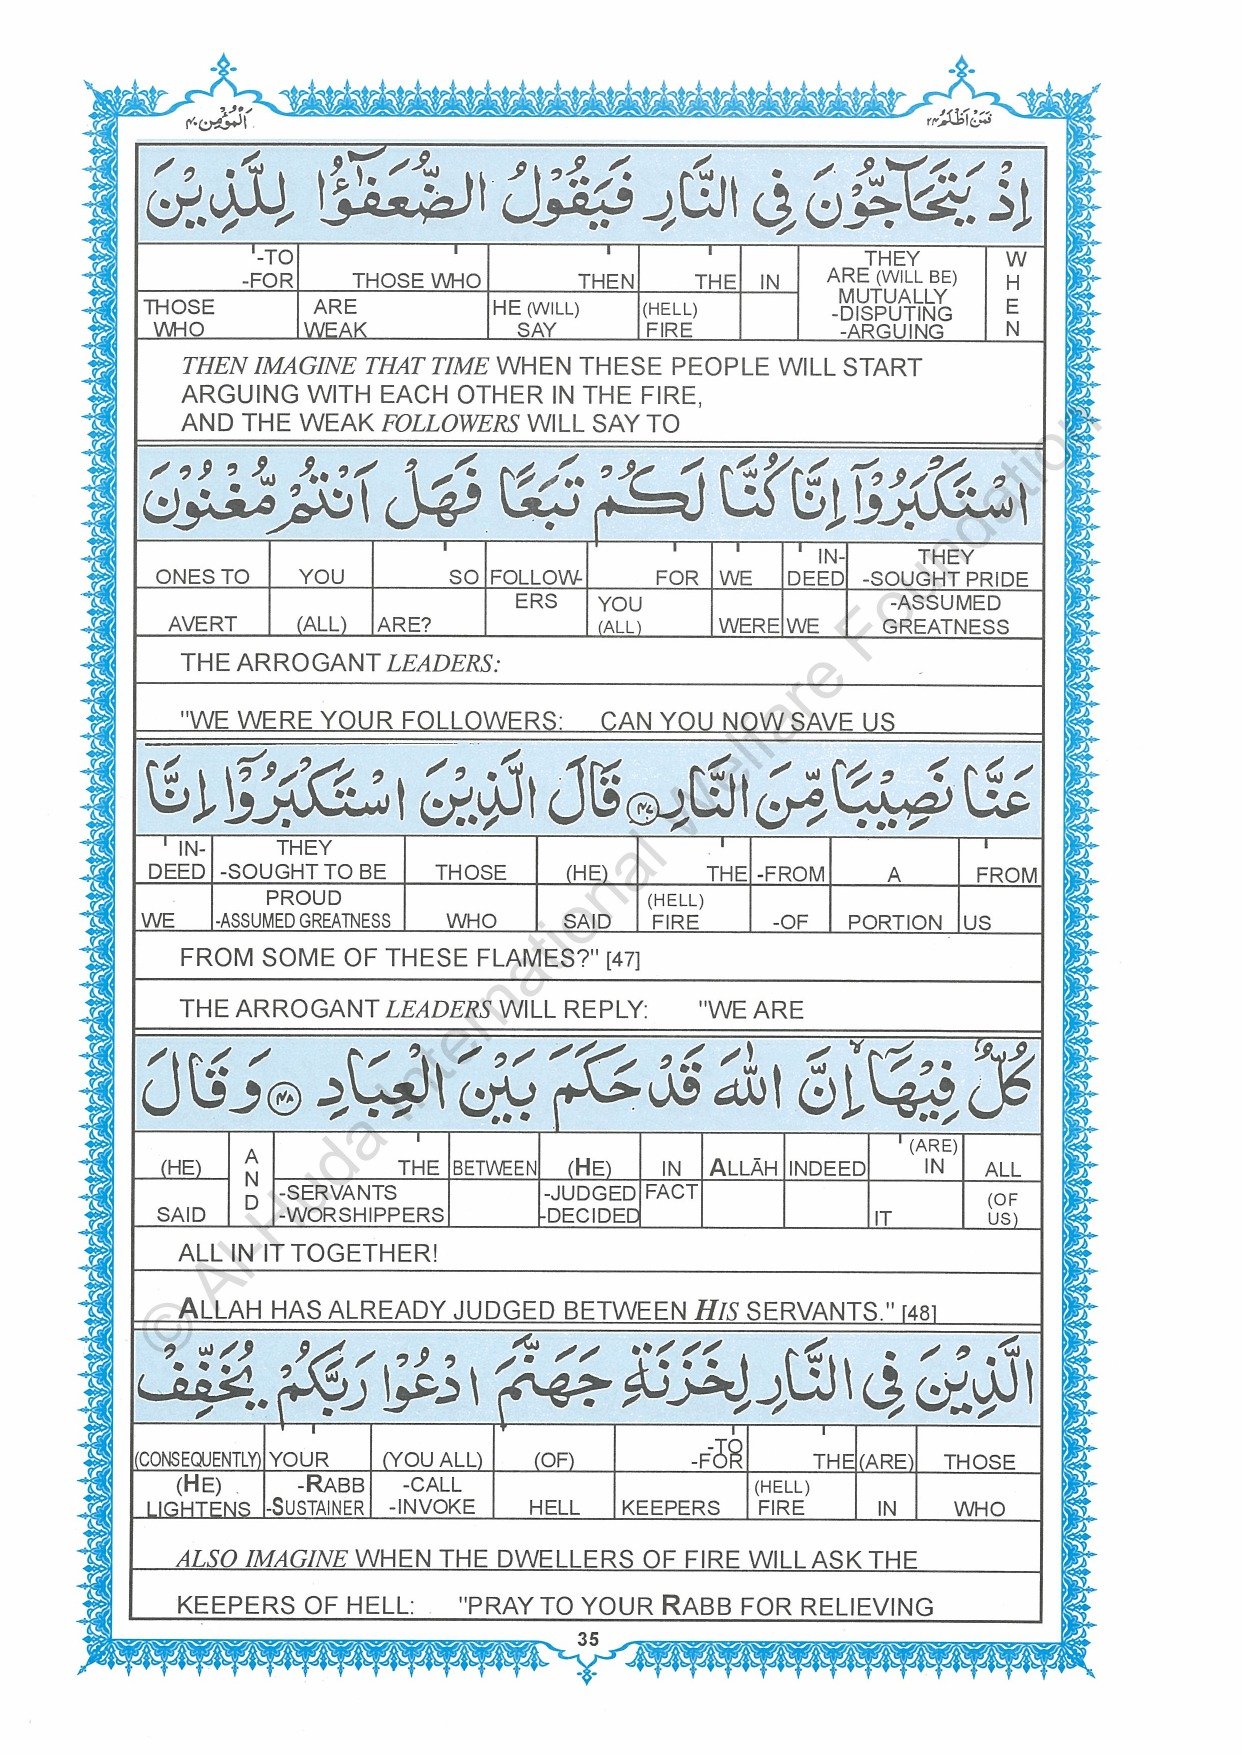 اَلْمُؤْمِن ٤٠
فَمَنْ اَظْلَمُ ٢٤
اِذْ يَتَحَآجُّوْنَ فِي النَّارِ فَيَقُوْلُ الضُّعَفٰٓؤُا لِلَّذِيْنَ
'-TO -FOR THOSE WHO THEN THE IN THEY ARE (WILL BE) MUTUALLY -DISPUTING -ARGUING WHEN
THOSE WHO ARE WEAK HE (WILL) SAY (HELL) FIRE
THEN IMAGINE THAT TIME WHEN THESE PEOPLE WILL START
ARGUING WITH EACH OTHER IN THE FIRE,
AND THE WEAK FOLLOWERS WILL SAY TO
اسْتَكْبَرُوْٓا اِنَّا كُنَّا لَكُمْ تَبَعًا فَهَلْ اَنْتُمْ مُّغْنُوْنَ
ONES TO YOU SO FOLLOW- FOR WE IN-DEED THEY -SOUGHT PRIDE
AVERT (ALL) ARE? ERS YOU (ALL) WERE WE -ASSUMED GREATNESS
THE ARROGANT LEADERS:
"WE WERE YOUR FOLLOWERS: CAN YOU NOW SAVE US
عَنَّا نَصِيْبًا مِّنَ النَّارِ ٤٧ قَالَ الَّذِيْنَ اسْتَكْبَرُوْٓا اِنَّا
IN-DEED THEY -SOUGHT TO BE THOSE (HE) THE -FROM A FROM
WE PROUD -ASSUMED GREATNESS WHO SAID (HELL) FIRE -OF PORTION US
FROM SOME OF THESE FLAMES?" [47]
THE ARROGANT LEADERS WILL REPLY: "WE ARE
كُلٌّ فِيْهَآ اِنَّ اللّٰهَ قَدْ حَكَمَ بَيْنَ الْعِبَادِ ٤٨ وَقَالَ
(HE) AND THE BETWEEN (HE) IN ALLĀH INDEED (ARE) IN ALL
SAID -SERVANTS -WORSHIPPERS -JUDGED -DECIDED FACT IT (OF US)
ALL IN IT TOGETHER!
ALLAH HAS ALREADY JUDGED BETWEEN HIS SERVANTS." [48]
الَّذِيْنَ فِي النَّارِ لِخَزَنَةِ جَهَنَّمَ ادْعُوْا رَبَّكُمْ يُخَفِّفْ
(CONSEQUENTLY) YOUR (YOU ALL) (OF) -TO -FOR THE (ARE) THOSE
(HE) LIGHTENS -RABB -SUSTAINER -CALL -INVOKE HELL KEEPERS (HELL) FIRE IN WHO
ALSO IMAGINE WHEN THE DWELLERS OF FIRE WILL ASK THE
KEEPERS OF HELL: "PRAY TO YOUR RABB FOR RELIEVING
35
© Al-Huda International Welfare Foundation